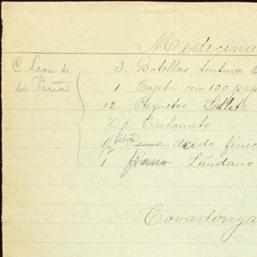 Medicina
C. Leon de la Peña
3 Botellas tintura
1 Cajita con 100 pap
12 Paquetes Sedlitz
½ Carbonato
½ una ácido fénic
1 frasco Láudano
Covadonga